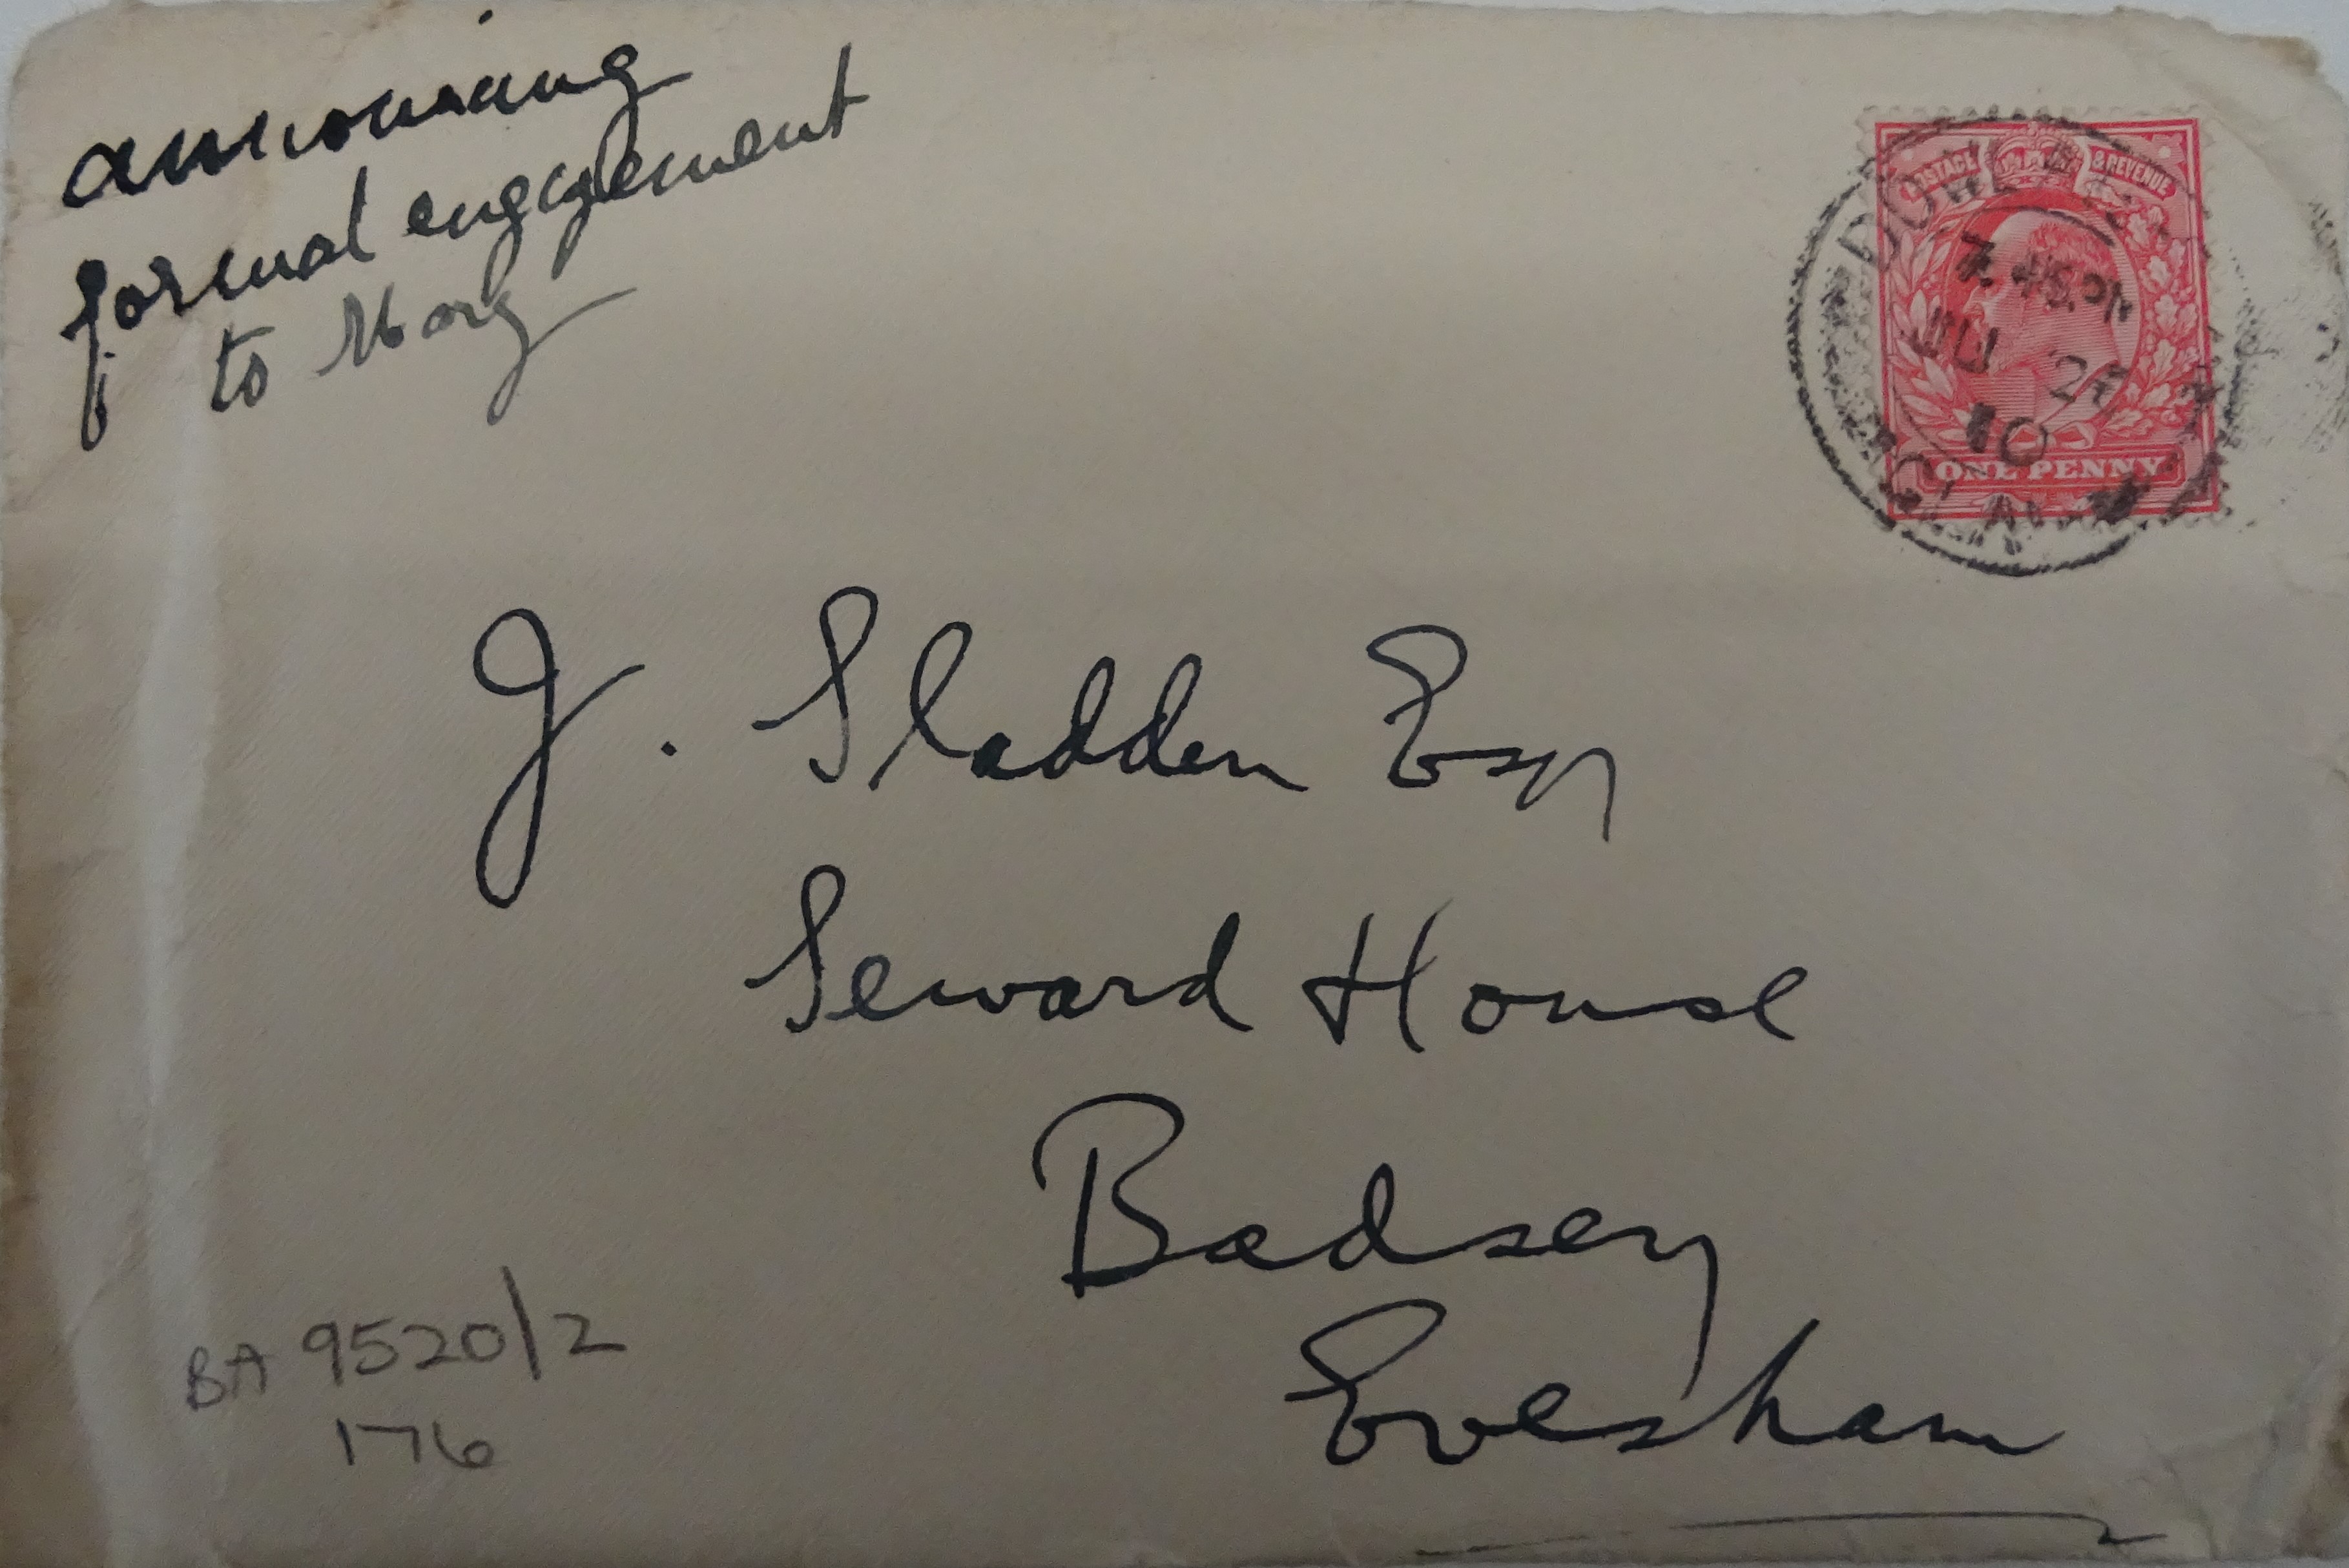 announcing
formal engagement
to Mary
POSTAGE & REVENUE
7.45PM
10
ONE PENNY
J. Sladden Esq
Seward House
Badsey
Evesham
BA 9520/2
176